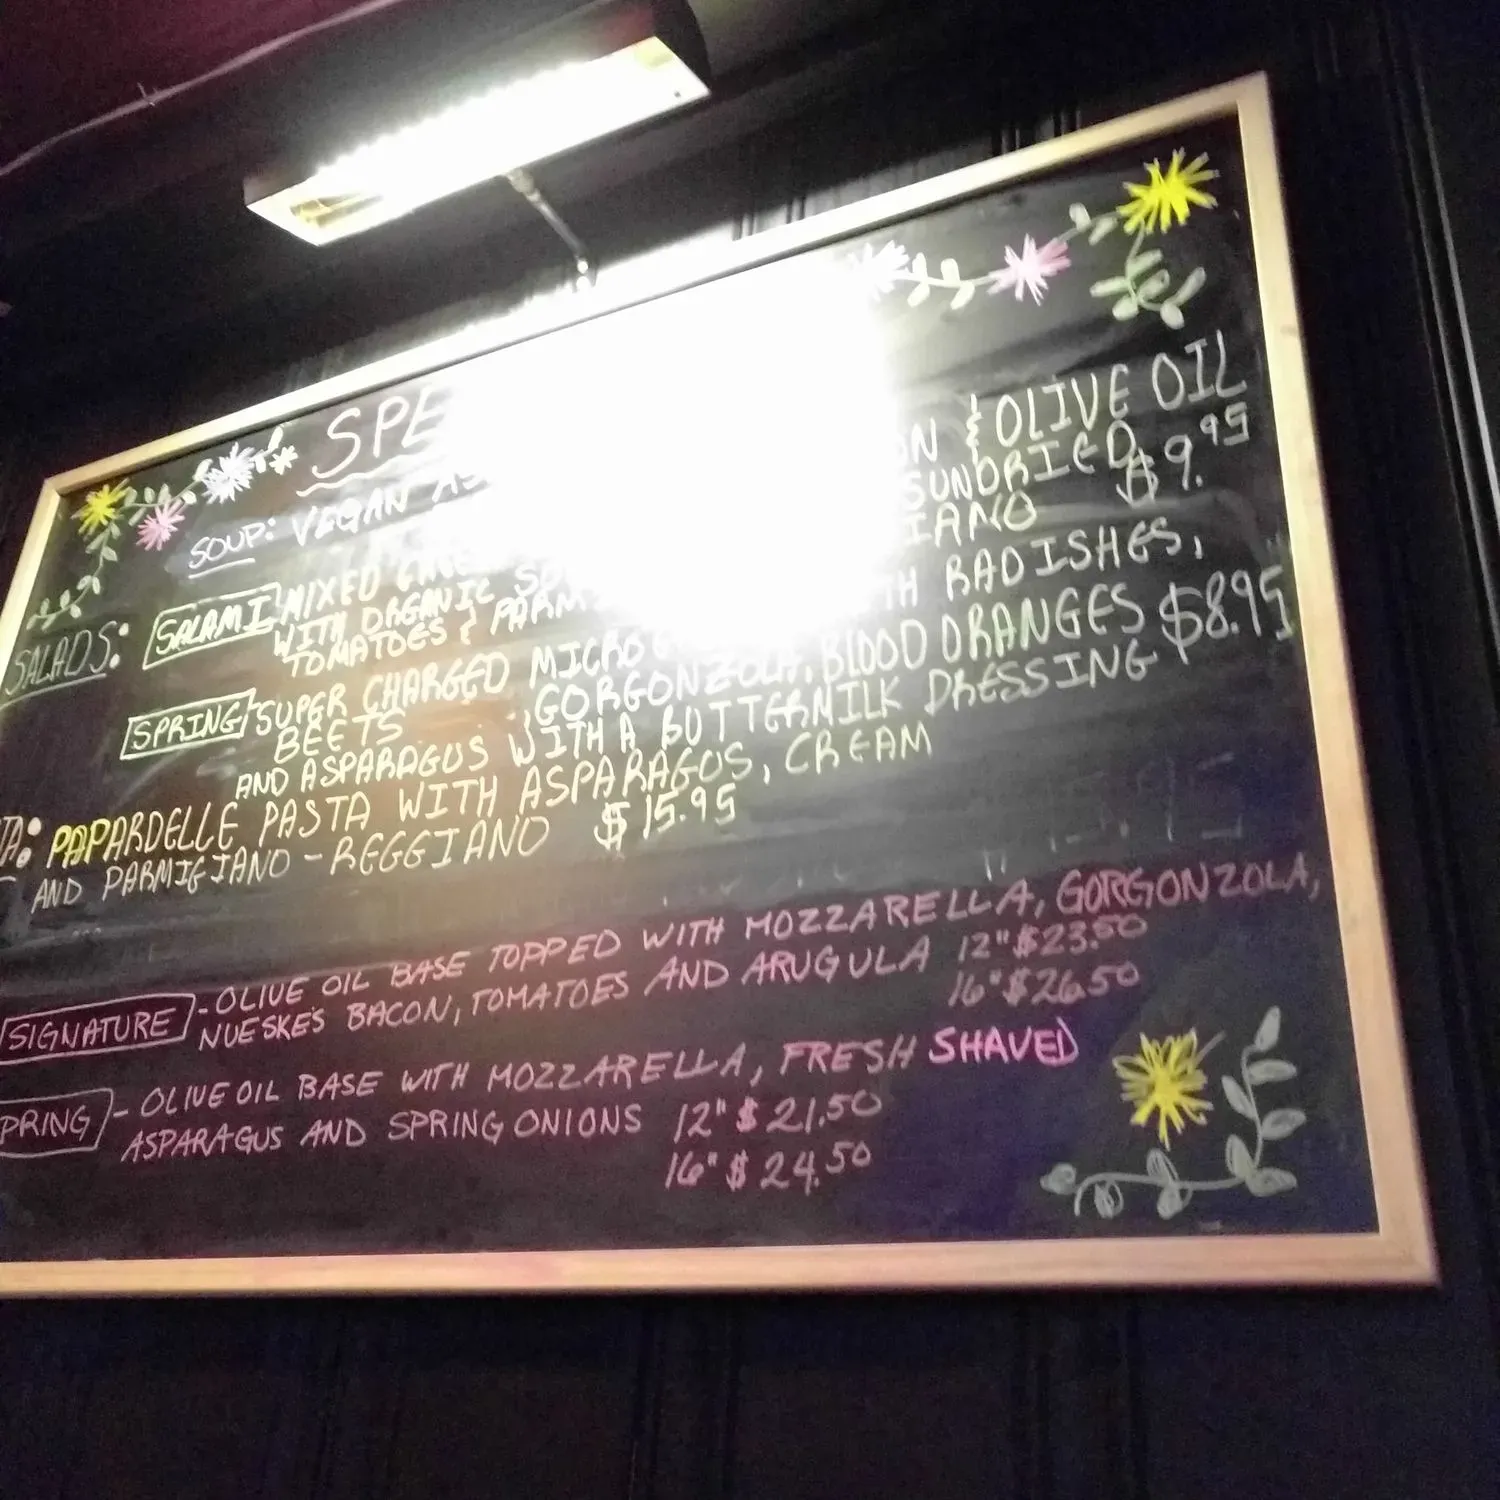 SPE
SOUP: VEGAN ON & OLIVE OIL
SALADS: SALAMI MIXED SUNDRIED $9.95
WITH ORGANIC
TOMATOES & 
SPRING SUPER CHARGED MICRO RADISHES,
BEETS , GORGONZOLA, BLOOD ORANGES $8.95
AND ASPARAGUS WITH A BUTTERMILK DRESSING
TA: PAPARDELLE PASTA WITH ASPARAGUS, CREAM
AND PARMIGIANO-REGGIANO $15.95
SIGNATURE - OLIVE OIL BASE TOPPED WITH MOZZARELLA, GORGONZOLA,
NUESKE'S BACON, TOMATOES AND ARUGULA 12" $23.50
16" $26.50
PRING - OLIVE OIL BASE WITH MOZZARELLA, FRESH SHAVED
ASPARAGUS AND SPRING ONIONS 12" $21.50
16" $24.50